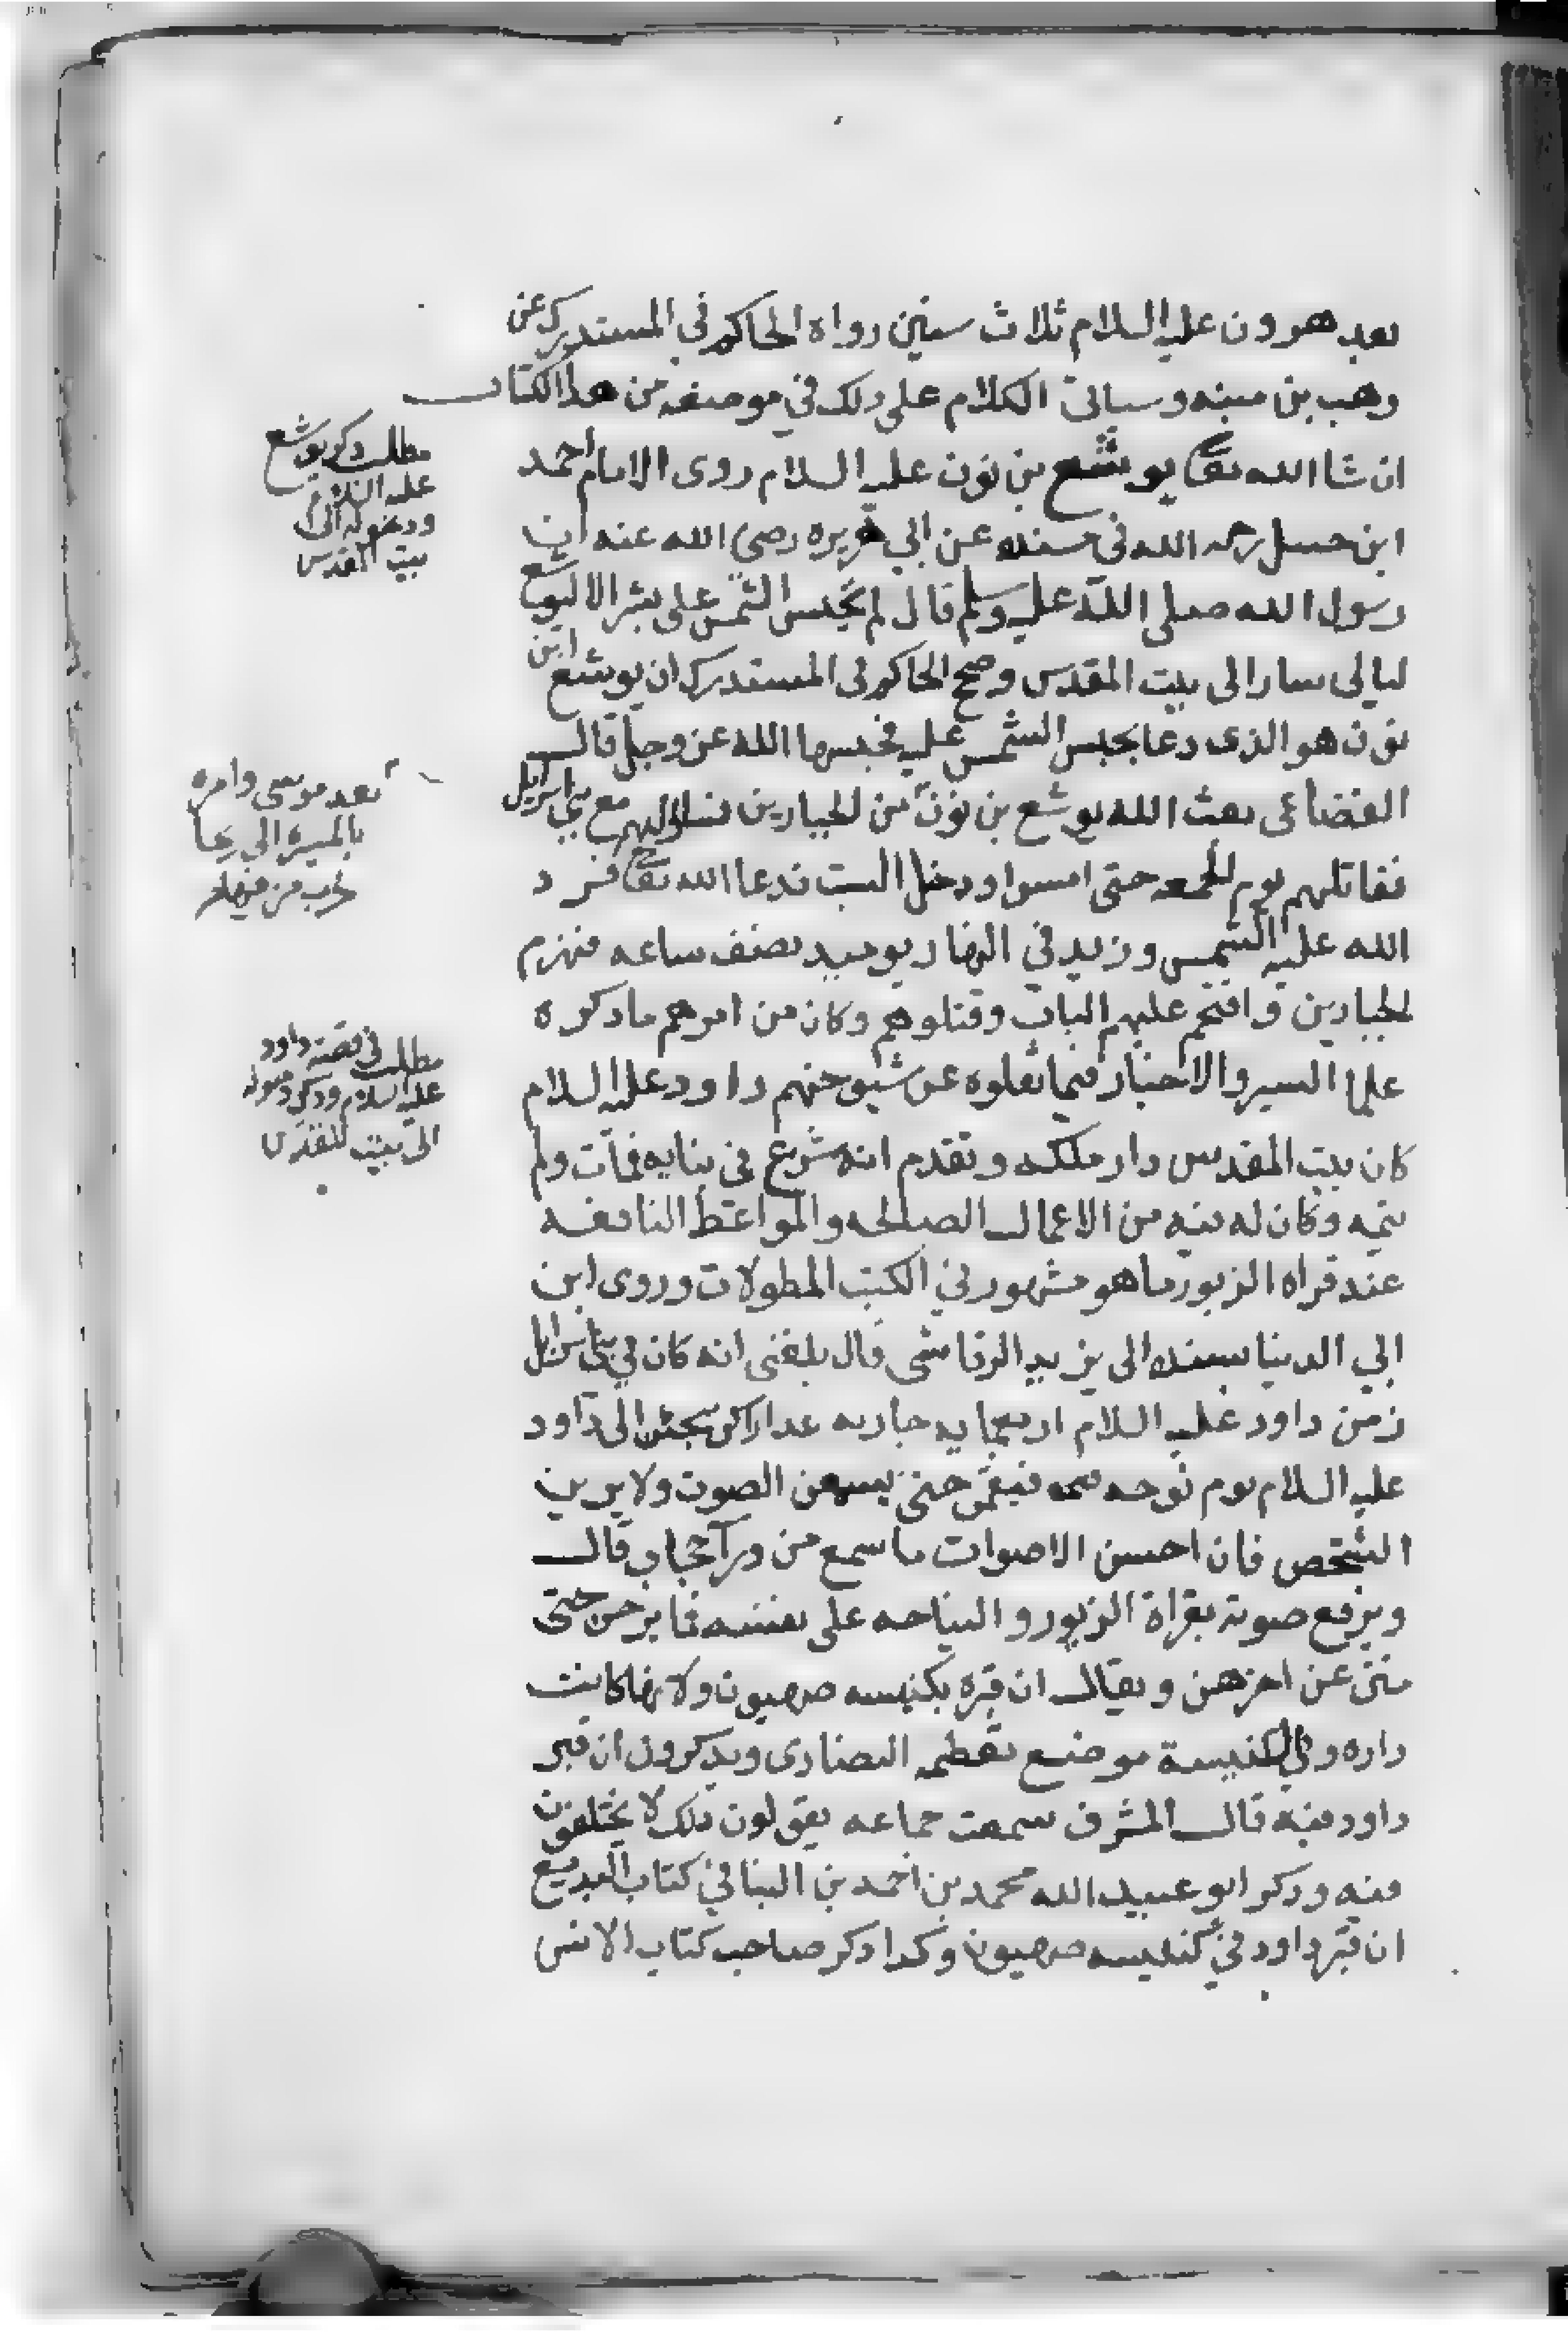 بعد هرون عليه السلام ثلاث سنين رواه الحاكم في المستدرك عن
وهب بن منبه وسياتي الكلام على ذلك في موضعه من هذا الكتاب
ان شا الله تعا يوشع بن نون عليه السلام روى الامام احمد
ابن حنبل رحمه الله في مسنده عن ابي هريره رضي الله عنه ان
رسول الله صلى الله عليه وسلم قال لم تحبس الشمس على بشر الا ليوشع
ليالي سار الى بيت المقدس وصح الحاكم في المستدرك ان يوشع ابن
نون هو الذي دعا بحبس الشمس عليه فحبسها الله عز وجل قال
القضاعي بعث الله يوشع بن نون من الجبارين فسار اليهم مع بني اسرايل
فقاتلهم يوم الجمعه حتى امسوا ودخل السبت فدعا الله تعا فرد
الله عليه الشمس وزيد في النهار يوميد نصف ساعه فهزم
الجبارين واقتحم عليهم الباب وقتلوهم وكان من امرهم ما ذكره
علما السير والاخبار فيما نقلوه عن شيوخهم داود عليه السلام
كان بيت المقدس دار ملكه وتقدم انه شرع في بنايه فمات ولم
يتمه وكان له فيه من الاعمال الصالحه والمواعظ النافعه
عند قراه الزبور ما هو مشهور في الكتب المطولات وروى ابن
ابي الدنيا بسنده الى يزيد الرقاشي قال بلغني انه كان في بني اسرايل
زمن داود عليه السلام اربعمايه جاريه عدارى يجئن الى داود
عليه السلام يوم نوحه حتى يسمعن الصوت ولا يرين
الشخص فان احسن الاصوات ما سمع من ورآ حجاب قال
ويرفع صوته بقراة الزبور والنياحه على نفسه فما يرحن حتى
متن عن اخرهن ويقال ان قبره بكنيسه صهيون ولانها كانت
داره وفي الكنيسة موضع تعظمه النصارى ويذكرون ان قبر
داود فيه قال المشرف سمعت جماعه يقولون ذلك لا يختلفون
فيه وذكر ابو عبيد الله محمد بن احمد بن البنا في كتاب البديع
ان قبر داود في كنيسه صهيون وكذا ذكر صاحب كتاب الانس
مطلب ذكر يوشع
عليه السلام
ودخوله الى
بيت المقدس
بعد موسى وامره
بالمسير الى ريحا
لحرب من فيها
مطلب في قصة داود
عليه السلام وذكر دخوله
الى بيت المقدس